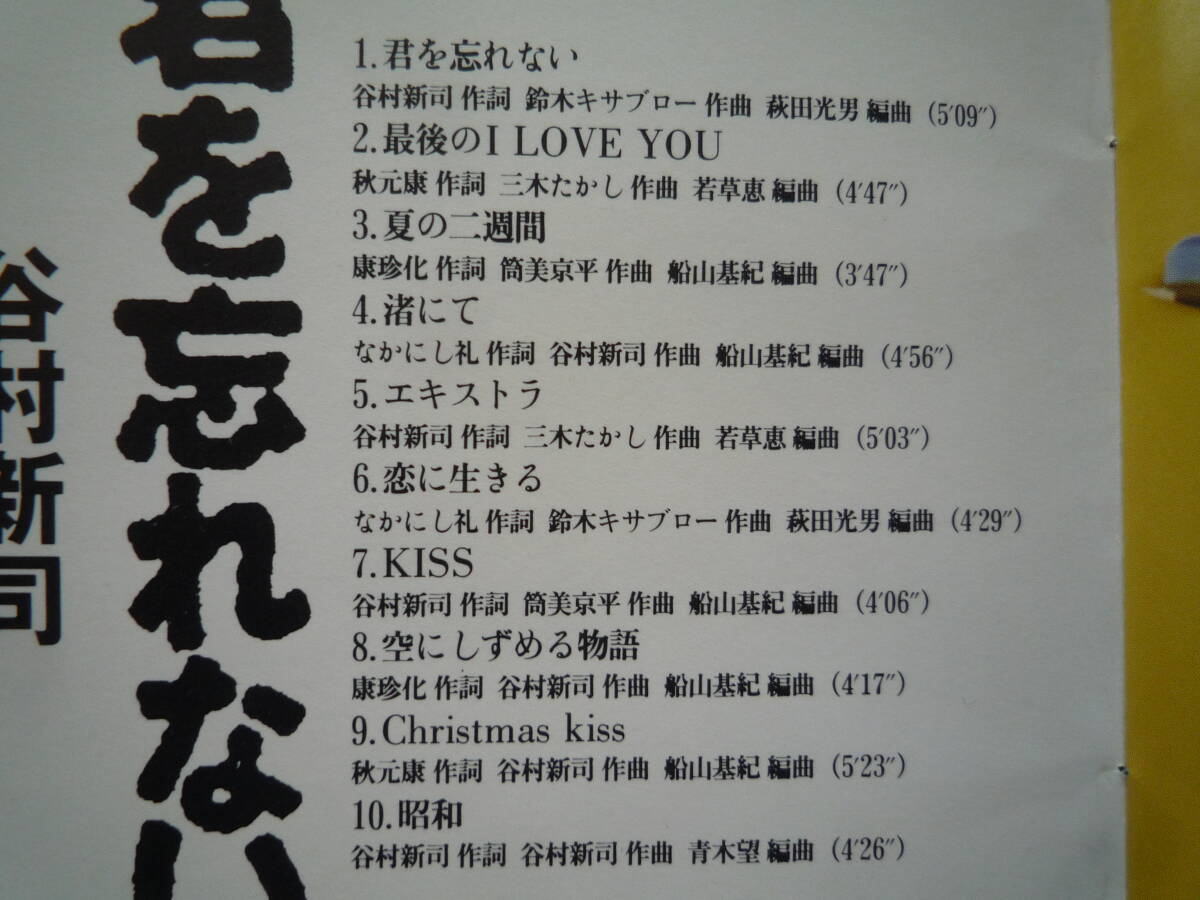 君を忘れない
谷村新司
1.君を忘れない
谷村新司 作詞 鈴木キサブロー 作曲 萩田光男 編曲 (5′09″)
2.最後のI LOVE YOU
秋元康 作詞 三木たかし 作曲 若草恵 編曲 (4′47″)
3.夏の二週間
康珍化 作詞 筒美京平 作曲 船山基紀 編曲 (3′47″)
4.渚にて
なかにし礼 作詞 谷村新司 作曲 船山基紀 編曲 (4′56″)
5.エキストラ
谷村新司 作詞 三木たかし 作曲 若草恵 編曲 (5′03″)
6.恋に生きる
なかにし礼 作詞 鈴木キサブロー 作曲 萩田光男 編曲 (4′29″)
7.KISS
谷村新司 作詞 筒美京平 作曲 船山基紀 編曲 (4′06″)
8.空にしずめる物語
康珍化 作詞 谷村新司 作曲 船山基紀 編曲 (4′17″)
9.Christmas kiss
秋元康 作詞 谷村新司 作曲 船山基紀 編曲 (5′23″)
10.昭和
谷村新司 作詞 谷村新司 作曲 青木望 編曲 (4′26″)